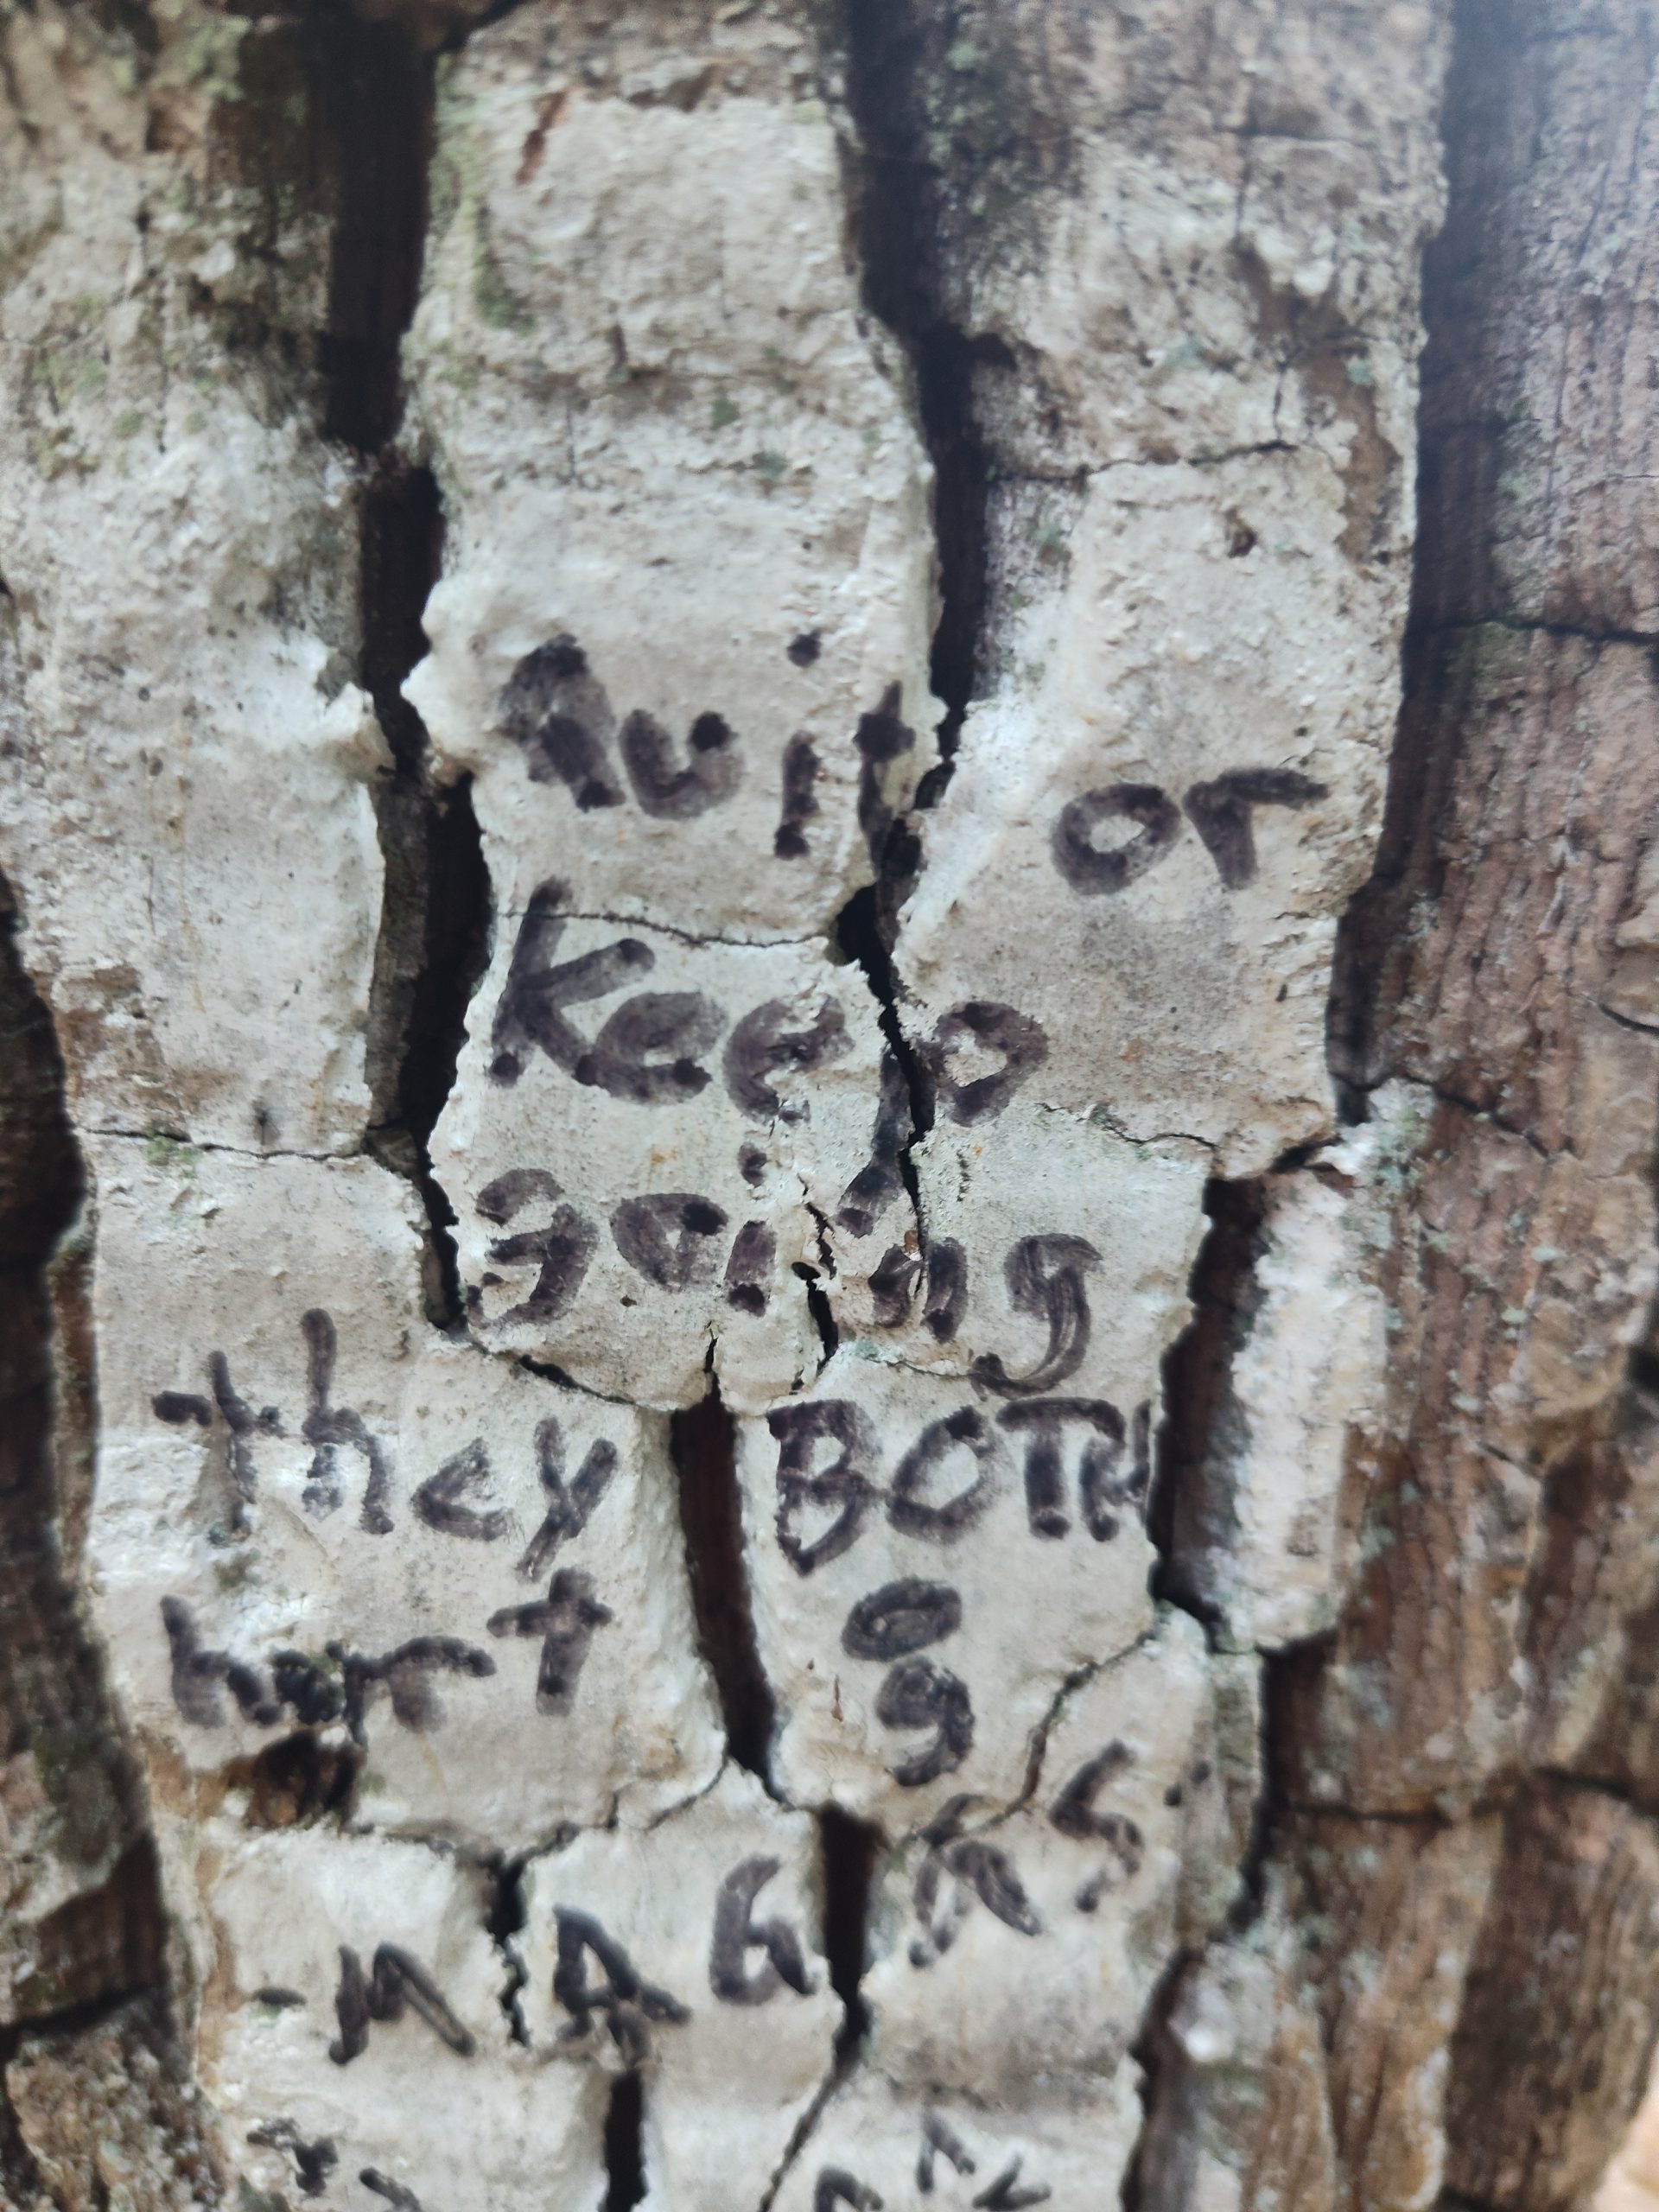 Quit or
Keep
going
they BOTH
hurt
- MAGAS